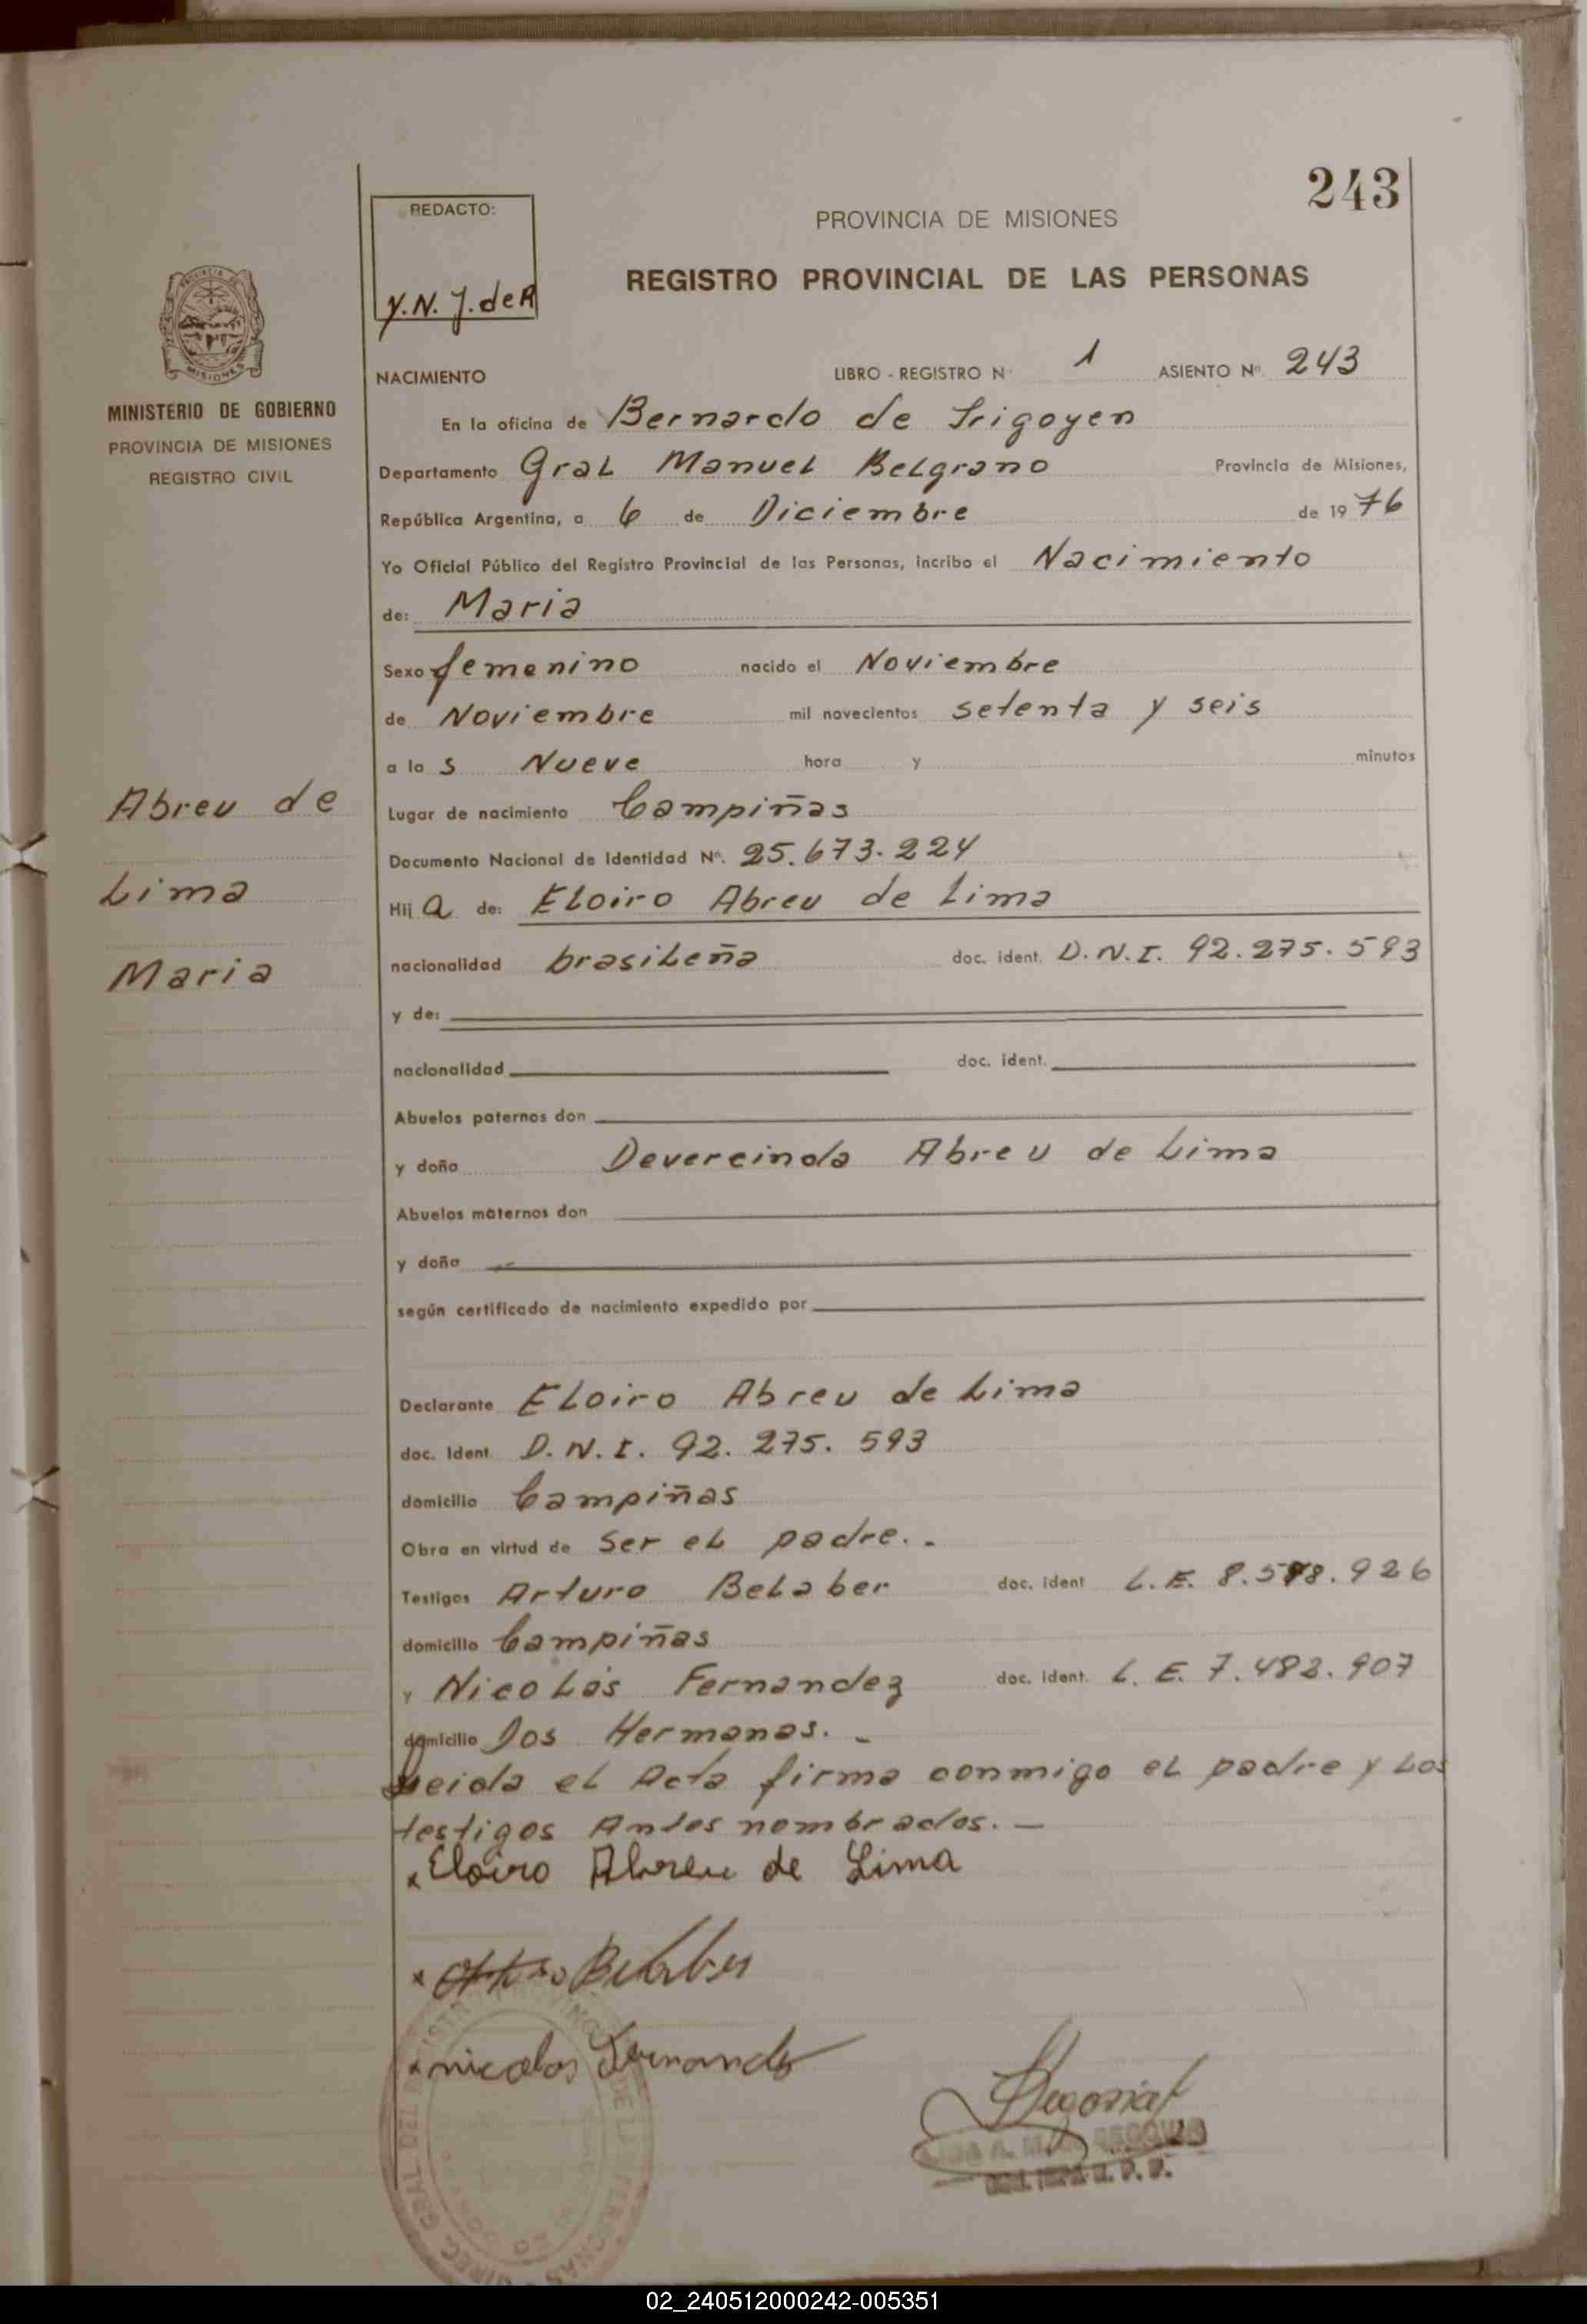 243
REDACTO:
Y.N.J. de R
PROVINCIA DE MISIONES
REGISTRO PROVINCIAL DE LAS PERSONAS
MISIONES
MINISTERIO DE GOBIERNO
PROVINCIA DE MISIONES
REGISTRO CIVIL
NACIMIENTO LIBRO - REGISTRO Nº 1 ASIENTO Nº. 243
En la oficina de Bernardo de Irigoyen
Departamento Gral Manuel Belgrano Provincia de Misiones,
República Argentina, a 6 de Diciembre de 1976
Yo Oficial Público del Registro Provincial de las Personas, incribo el Nacimiento
de: Maria
Sexo femenino nacido el Noviembre
de Noviembre mil novecientos setenta y seis
a las Nueve hora y minutos
Abreu de
Lima
Maria
Lugar de nacimiento Campiñas
Documento Nacional de Identidad Nº. 25.673.224
Hija de: Eloiro Abreu de Lima
nacionalidad brasileña doc. ident. D.N.I. 92.275.593
y de:
nacionalidad doc. ident.
Abuelos paternos don
y doña Devercinda Abreu de Lima
Abuelos maternos don
y doña
según certificado de nacimiento expedido por
Declarante Eloiro Abreu de Lima
doc. Ident. D.N.I. 92.275.593
domicilio Campiñas
Obra en virtud de Ser el padre.-
Testigos Arturo Belaber doc. ident L.E. 8.578.926
domicilio Campiñas
y Nicolás Fernandez doc. Ident. L.E. 7.482.907
domicilio Dos Hermanas.-
Leida el Acta firma conmigo el padre y los
testigos Antes nombrados.-
x Eloiro Abreu de Lima
x Arturo Belaber
x nicolas Fernandez
02_240512000242-005351